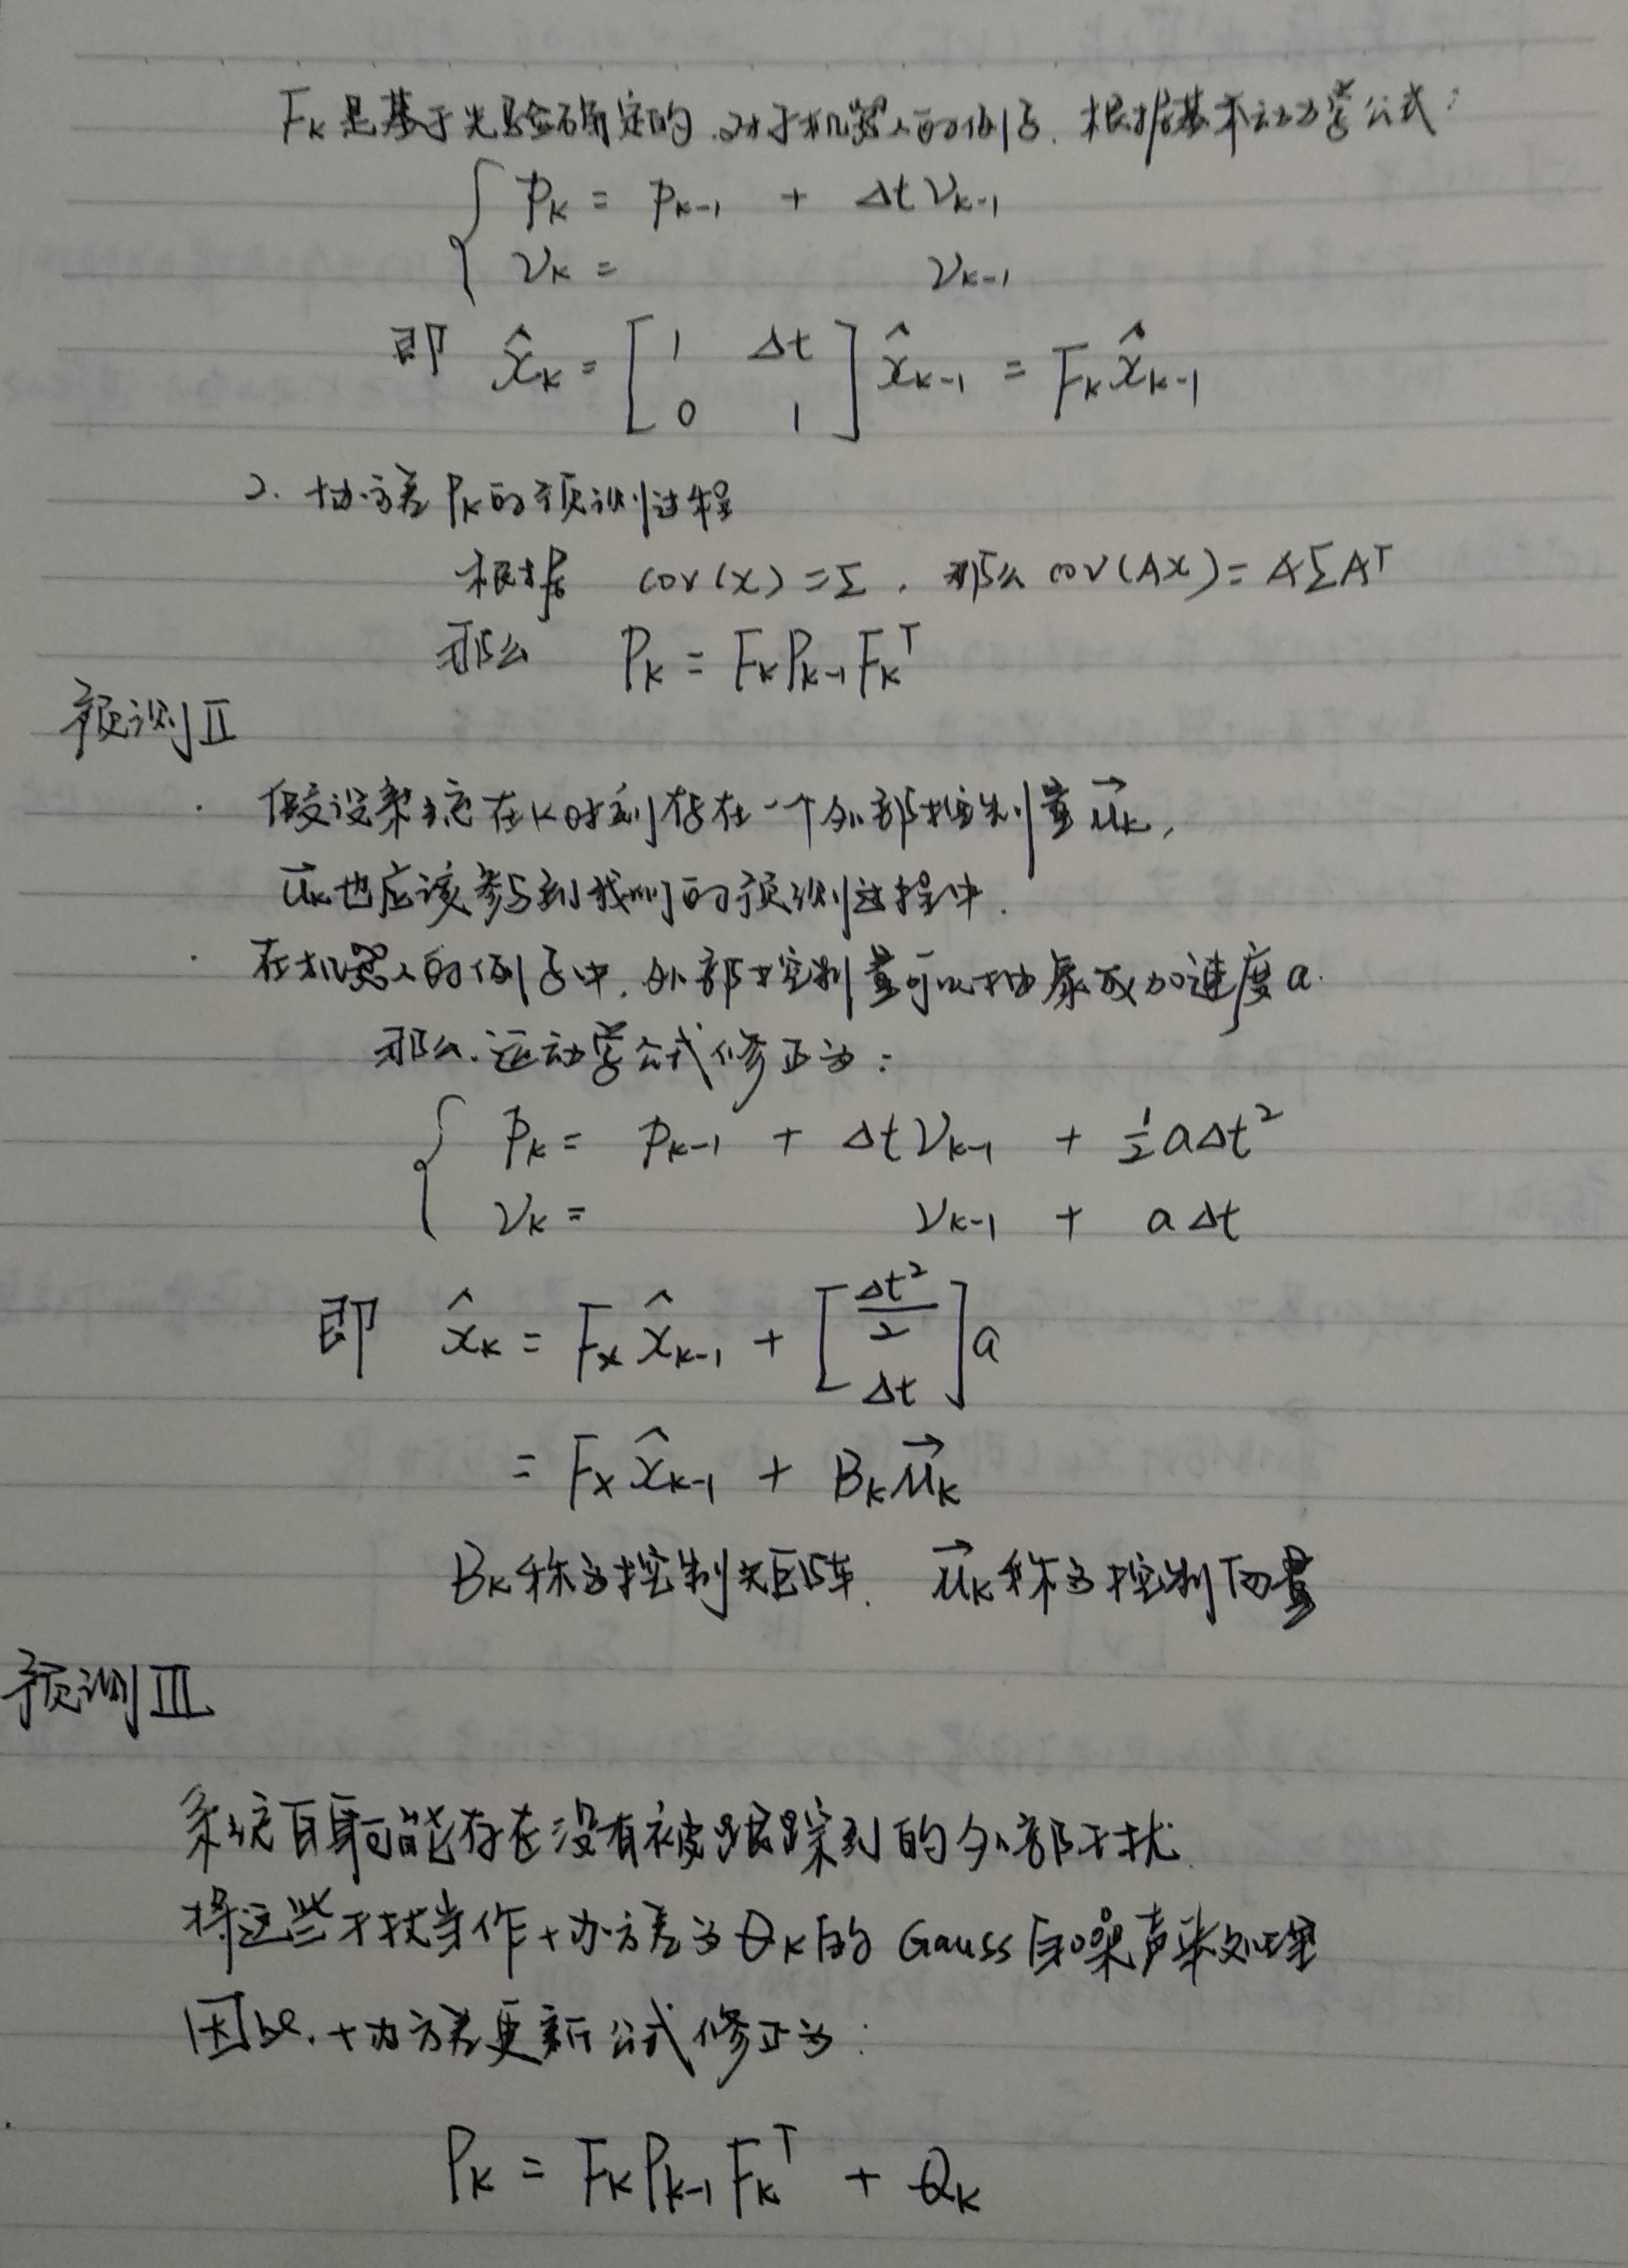 F_k 是基于先验确定的.对于机器人的例子.根据基本动力学公式:
{ p_k = p_{k-1} + Δt v_{k-1}
v_k = v_{k-1}
即 x̂_k = [1 Δt; 0 1] x̂_{k-1} = F_k x̂_{k-1}
2. 协方差 P_k 的预测过程
根据 cov(x) = Σ, 那么 cov(Ax) = AΣA^T
那么 P_k = F_k P_{k-1} F_k^T
预测 II
· 假设系统在 k 时刻存在一个外部控制量 u⃗_k,
u⃗_k 也应该参与到我们的预测过程中.
· 在机器人的例子中.外部控制量可以抽象成加速度 a.
那么.运动学公式修正为:
{ p_k = p_{k-1} + Δt v_{k-1} + 1/2 aΔt^2
v_k = v_{k-1} + aΔt
即 x̂_k = F_x x̂_{k-1} + [Δt^2/2; Δt] a
= F_x x̂_{k-1} + B_k u⃗_k
B_k 称为控制矩阵. u⃗_k 称为控制向量
预测 III
系统自身可能存在没有被跟踪到的外部干扰.
将这些干扰当作协方差为 Q_k 的 Gauss 白噪声来处理
因此.协方差更新公式修正为:
P_k = F_k P_{k-1} F_k^T + Q_k